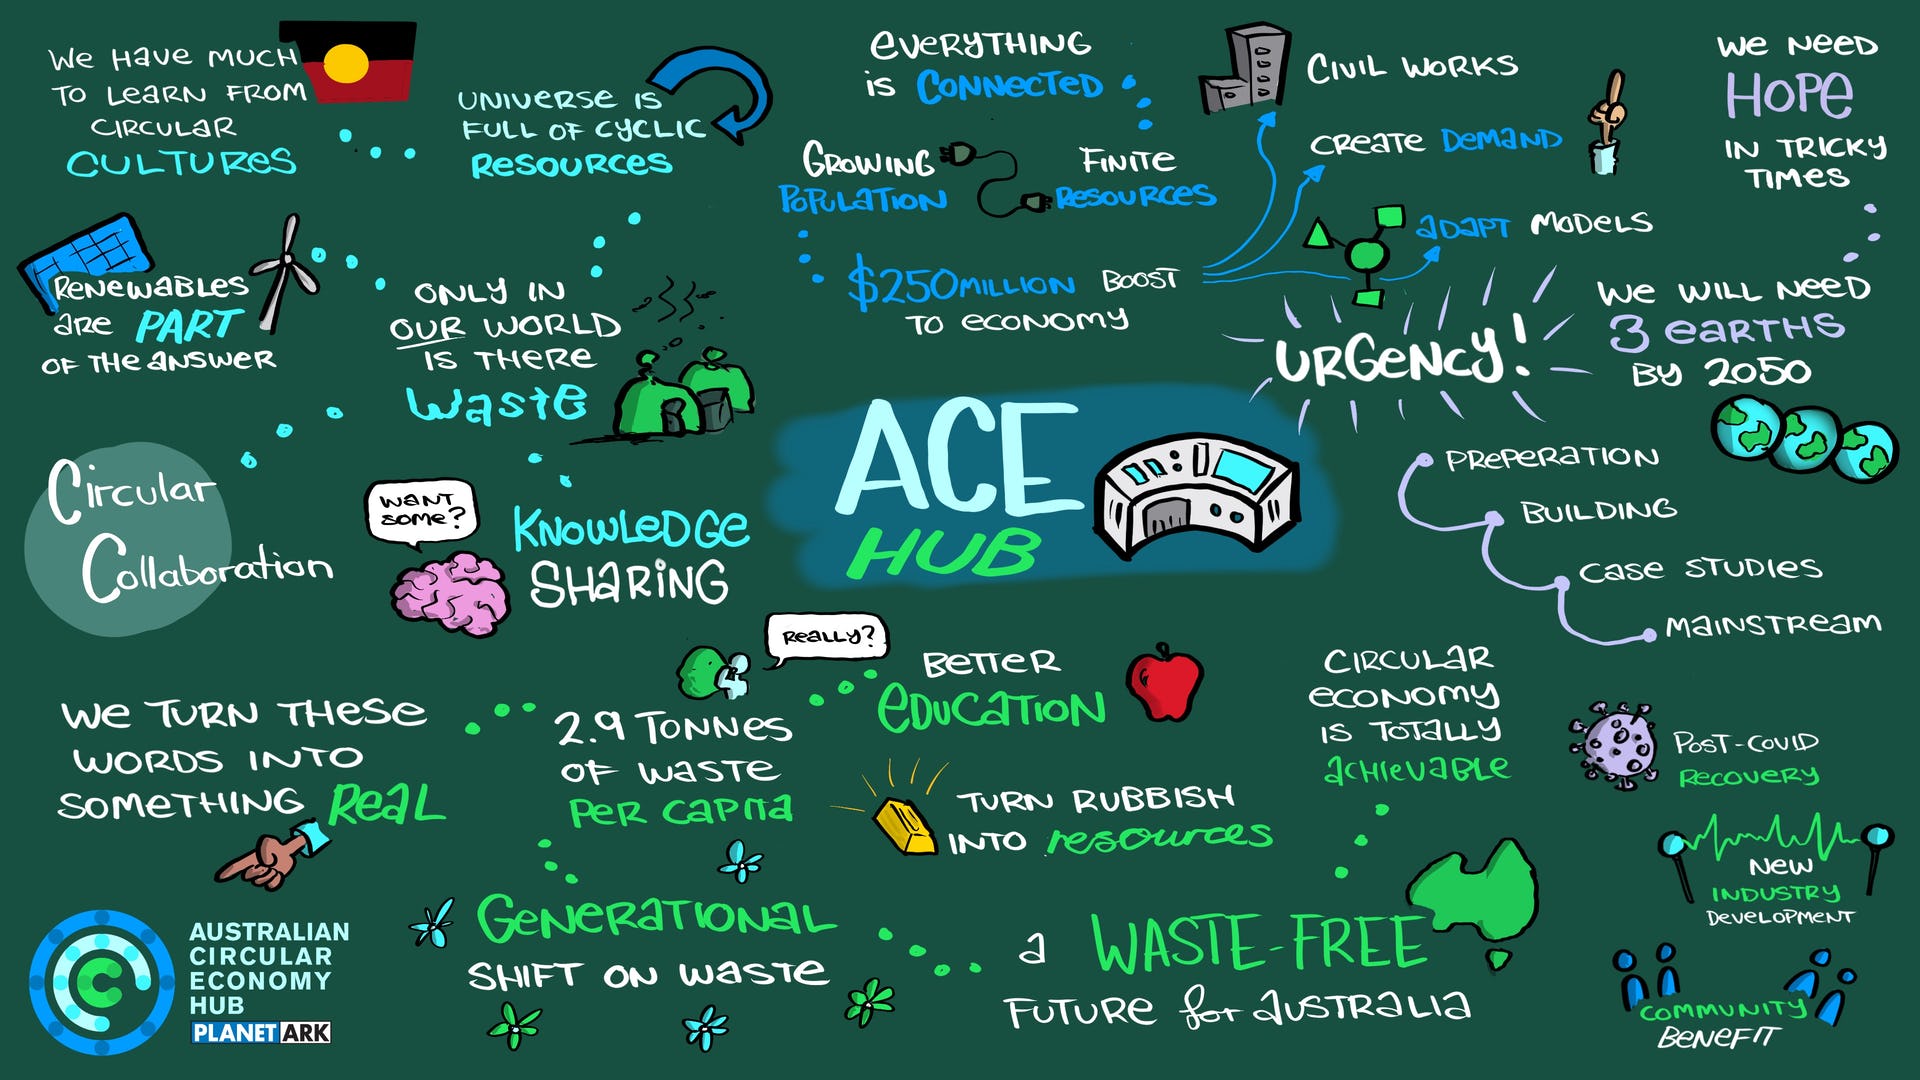 We Have MUCH
TO LeaRN FROM
CIRCULAR
CULTUReS
UNIVeRSe IS
FULL OF CYCLIC
ResouRCes
eVeRYTHING
is CONNecTeD
GROWING
POPULaTION
FINITe
ResouRCes
$250MILLION BOOST
TO eCONOMY
CIVIL WORKS
CReaTe DeMaND
aDaPT MoDeLS
We NeeD
HOPe
IN TRICKY
TIMeS
URGeNCY!
We WILL NeeD
3 eaRTHS
BY 2050
ReNeWaBLeS
aRe PART
OF THe aNSWeR
ONLY IN
OUR WORLD
IS THeRe
Waste
Circular
Collaboration
WaNT
SOMe?
KNOWLeDGe
SHaRiNG
ACE
HUB
PRePeRaTION
BUILDING
Case STUDIeS
MaINSTReaM
ReaLLY?
We TURN THeSe
WORDS INTO
SOMeTHING ReaL
2.9 TONNeS
OF WaSTe
PeR CaPITa
BeTTeR
eDUCaTION
TURN RUBBISH
INTO resources
CIRCULaR
eCONOMY
IS TOTaLLY
aCHIeVaBLe
POST-COVID
ReCOVeRY
NeW
INDUSTRY
DeVeLOPMeNT
GeNeRaTIONaL
SHIFT ON WaSTe
a WASTE-FREE
FUTURe for aUSTRALIa
COMMUNITY
BeNeFIT
AUSTRALIAN
CIRCULAR
ECONOMY
HUB
PLANET ARK